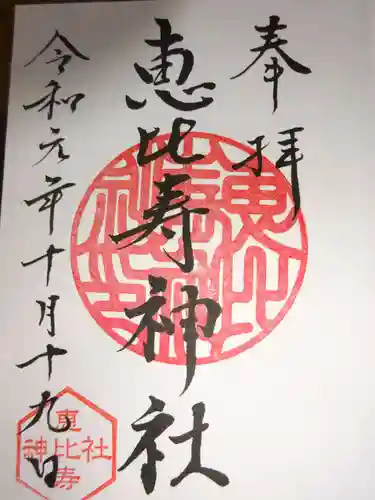 奉拝
恵比寿神社
令和元年十月十九日
恵比寿
神社